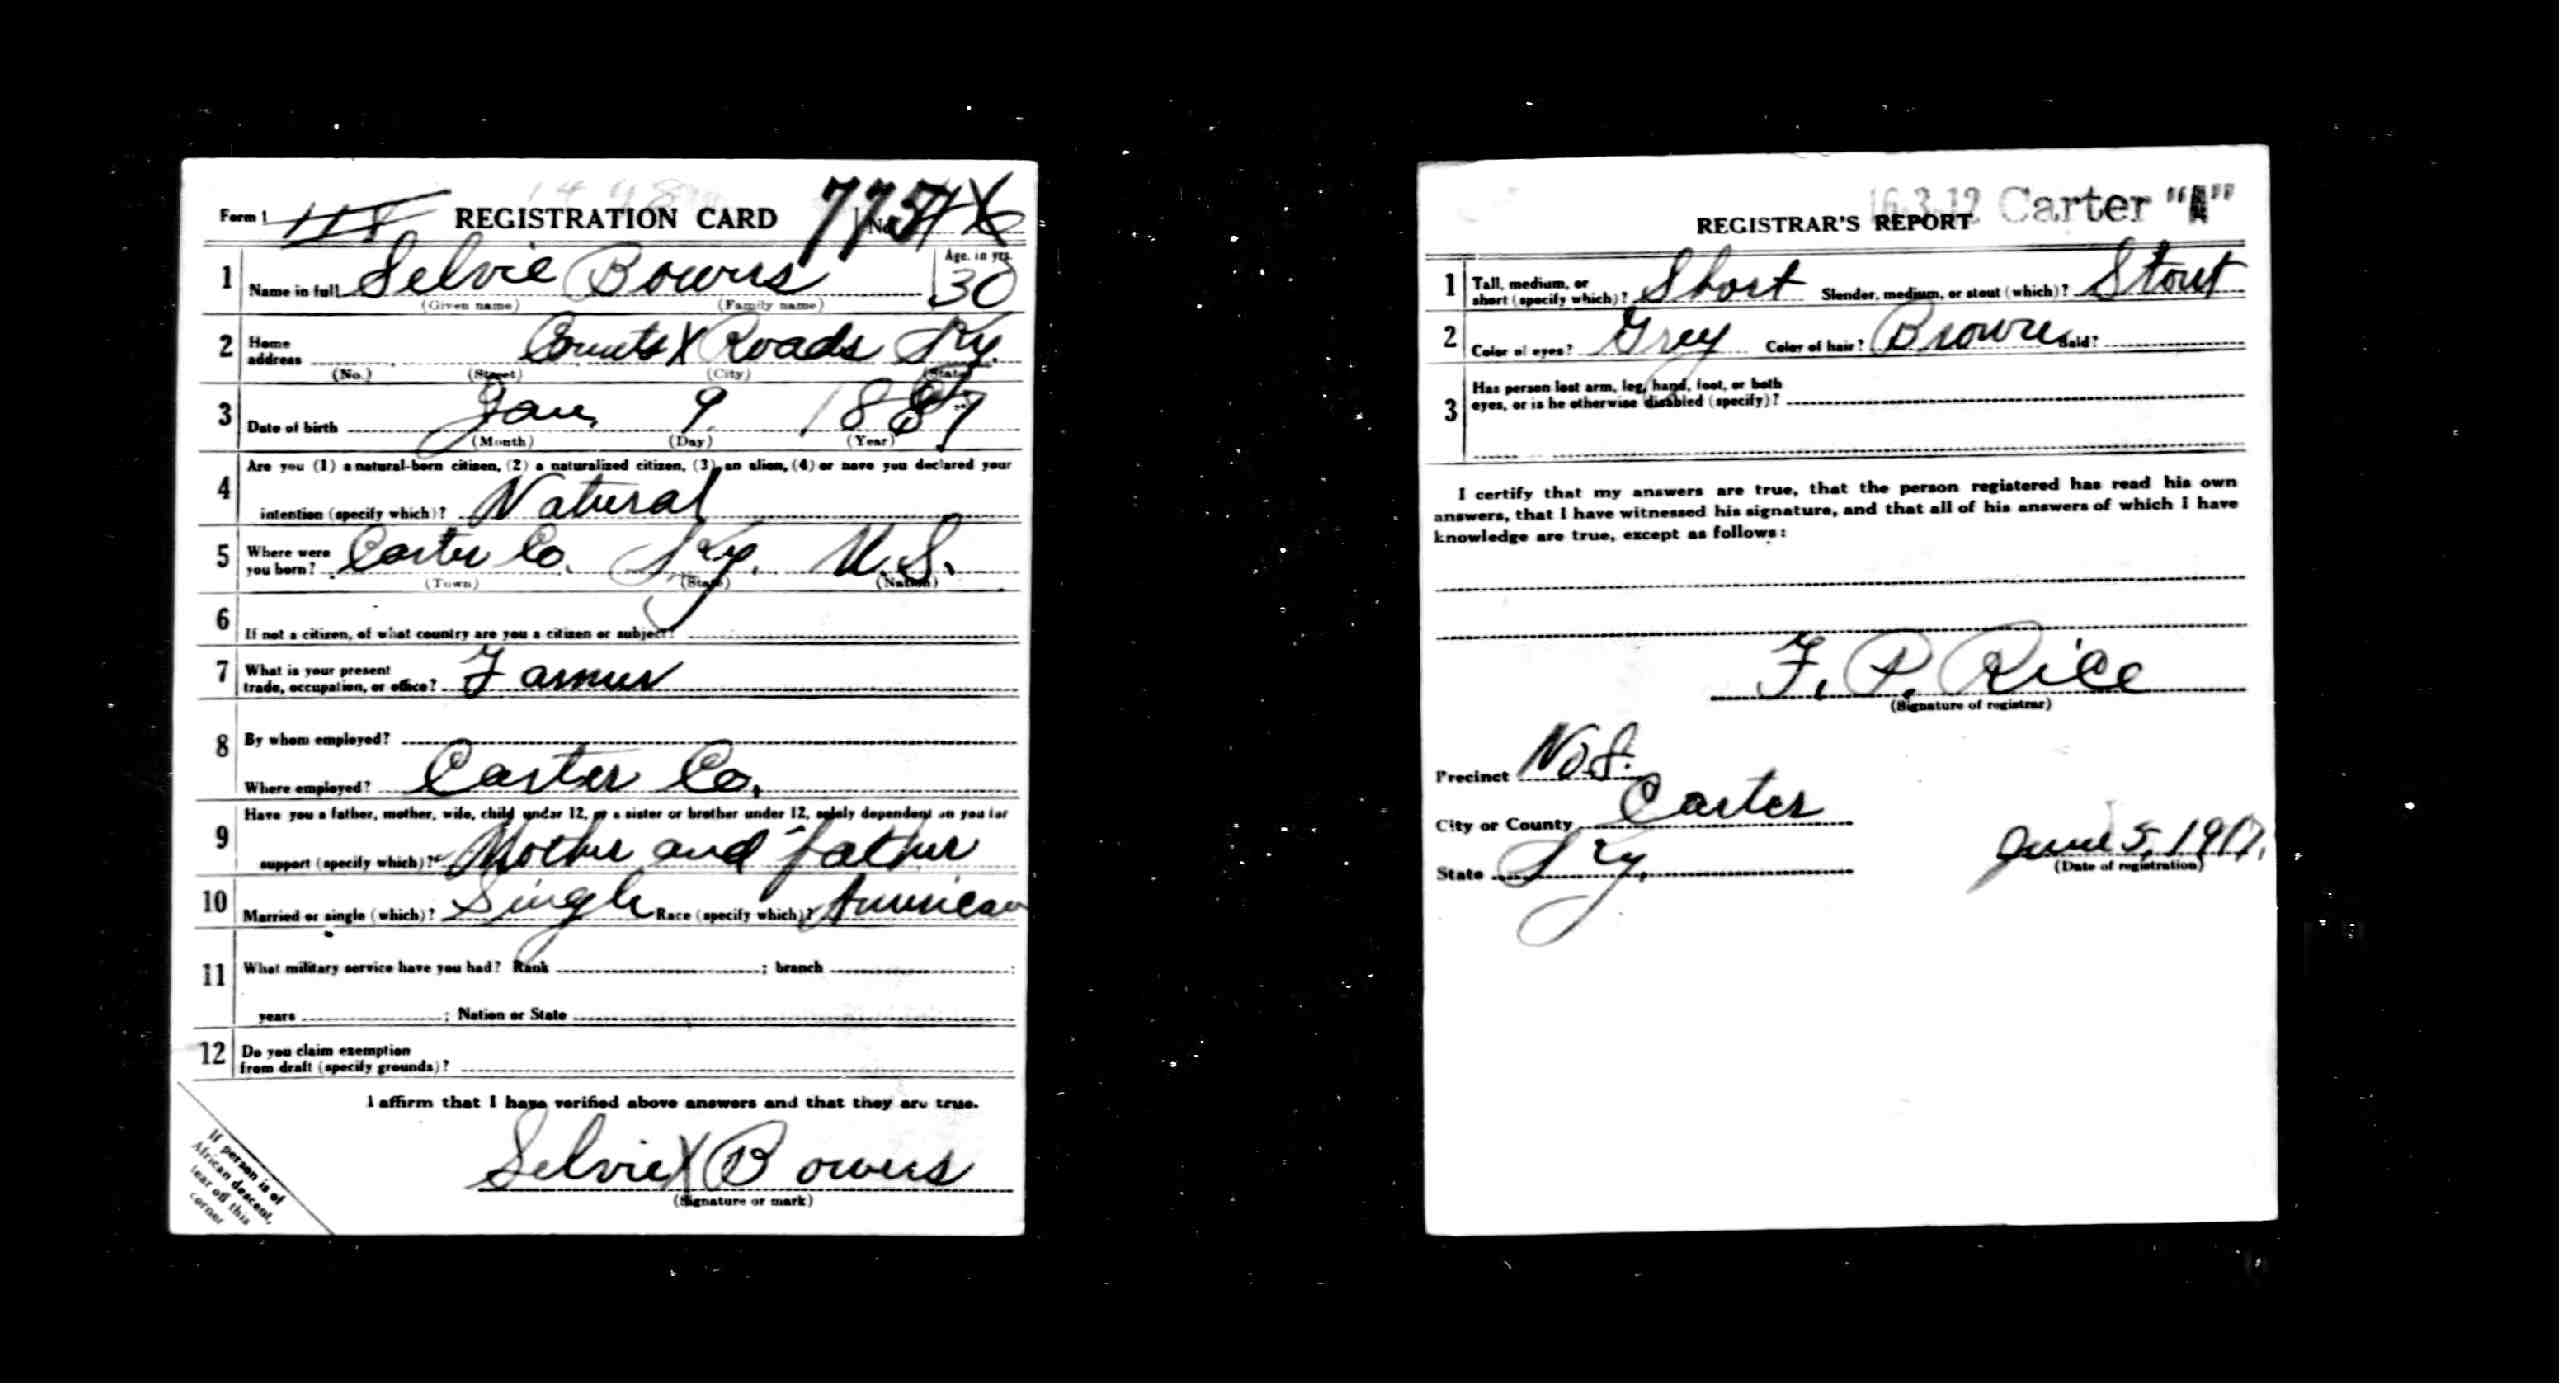 Form 1 118 REGISTRATION CARD No.
1 Name in full Selvie Bowers Age, in yrs. 30
(Given name) (Family name)
2 Home address Counts X Roads Ky.
(No.) (Street) (City) (State)
3 Date of birth Jan. 9 1887
(Month) (Day) (Year)
4 Are you (1) a natural-born citizen, (2) a naturalized citizen, (3) an alien, (4) or have you declared your
intention (specify which)? Natural
5 Where were you born? Carter Co. Ky. U.S.
(Town) (State) (Nation)
6 If not a citizen, of what country are you a citizen or subject?
7 What is your present trade, occupation, or office? Farmer
8 By whom employed?
Where employed? Carter Co.
9 Have you a father, mother, wife, child under 12, or a sister or brother under 12, solely dependent on you for
support (specify which)? Mother and father
10 Married or single (which)? Single Race (specify which)? American
11 What military service have you had? Rank ; branch ;
years ; Nation or State
12 Do you claim exemption
from draft (specify grounds)?
I affirm that I have verified above answers and that they are true.
Selvie X Bowers
(Signature or mark)
If person is of
African descent,
tear off this
corner
16-3-12 Carter "A"
REGISTRAR'S REPORT
1 Tall, medium, or short (specify which)? Short Slender, medium, or stout (which)? Stout
2 Color of eyes? Grey Color of hair? Brown Bald?
3 Has person lost arm, leg, hand, foot, or both
eyes, or is he otherwise disabled (specify)?
I certify that my answers are true, that the person registered has read his own
answers, that I have witnessed his signature, and that all of his answers of which I have
knowledge are true, except as follows:
F. P. Rice
(Signature of registrar)
Precinct No 8.
City or County Carter
State Ky.
June 5, 1917.
(Date of registration)